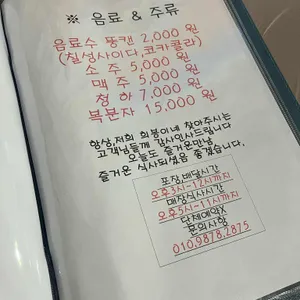 ※ 음료 & 주류
음료수 뚱캔 2,000 원
(칠성사이다,코카콜라)
소 주 5,000 원
맥 주 5,000 원
청 하 7,000 원
복분자 15,000 원
항상,저희 희봉이네 찾아주시는
고객님들께 감사인사드립니다
오늘도 즐거운만남
즐거운 식사되셨음 좋겠습니다.
포장,배달시간
오후3시-12시까지
매장식사시간
오후5시-11시까지
단체예약X
문의사항
010.9878.2875